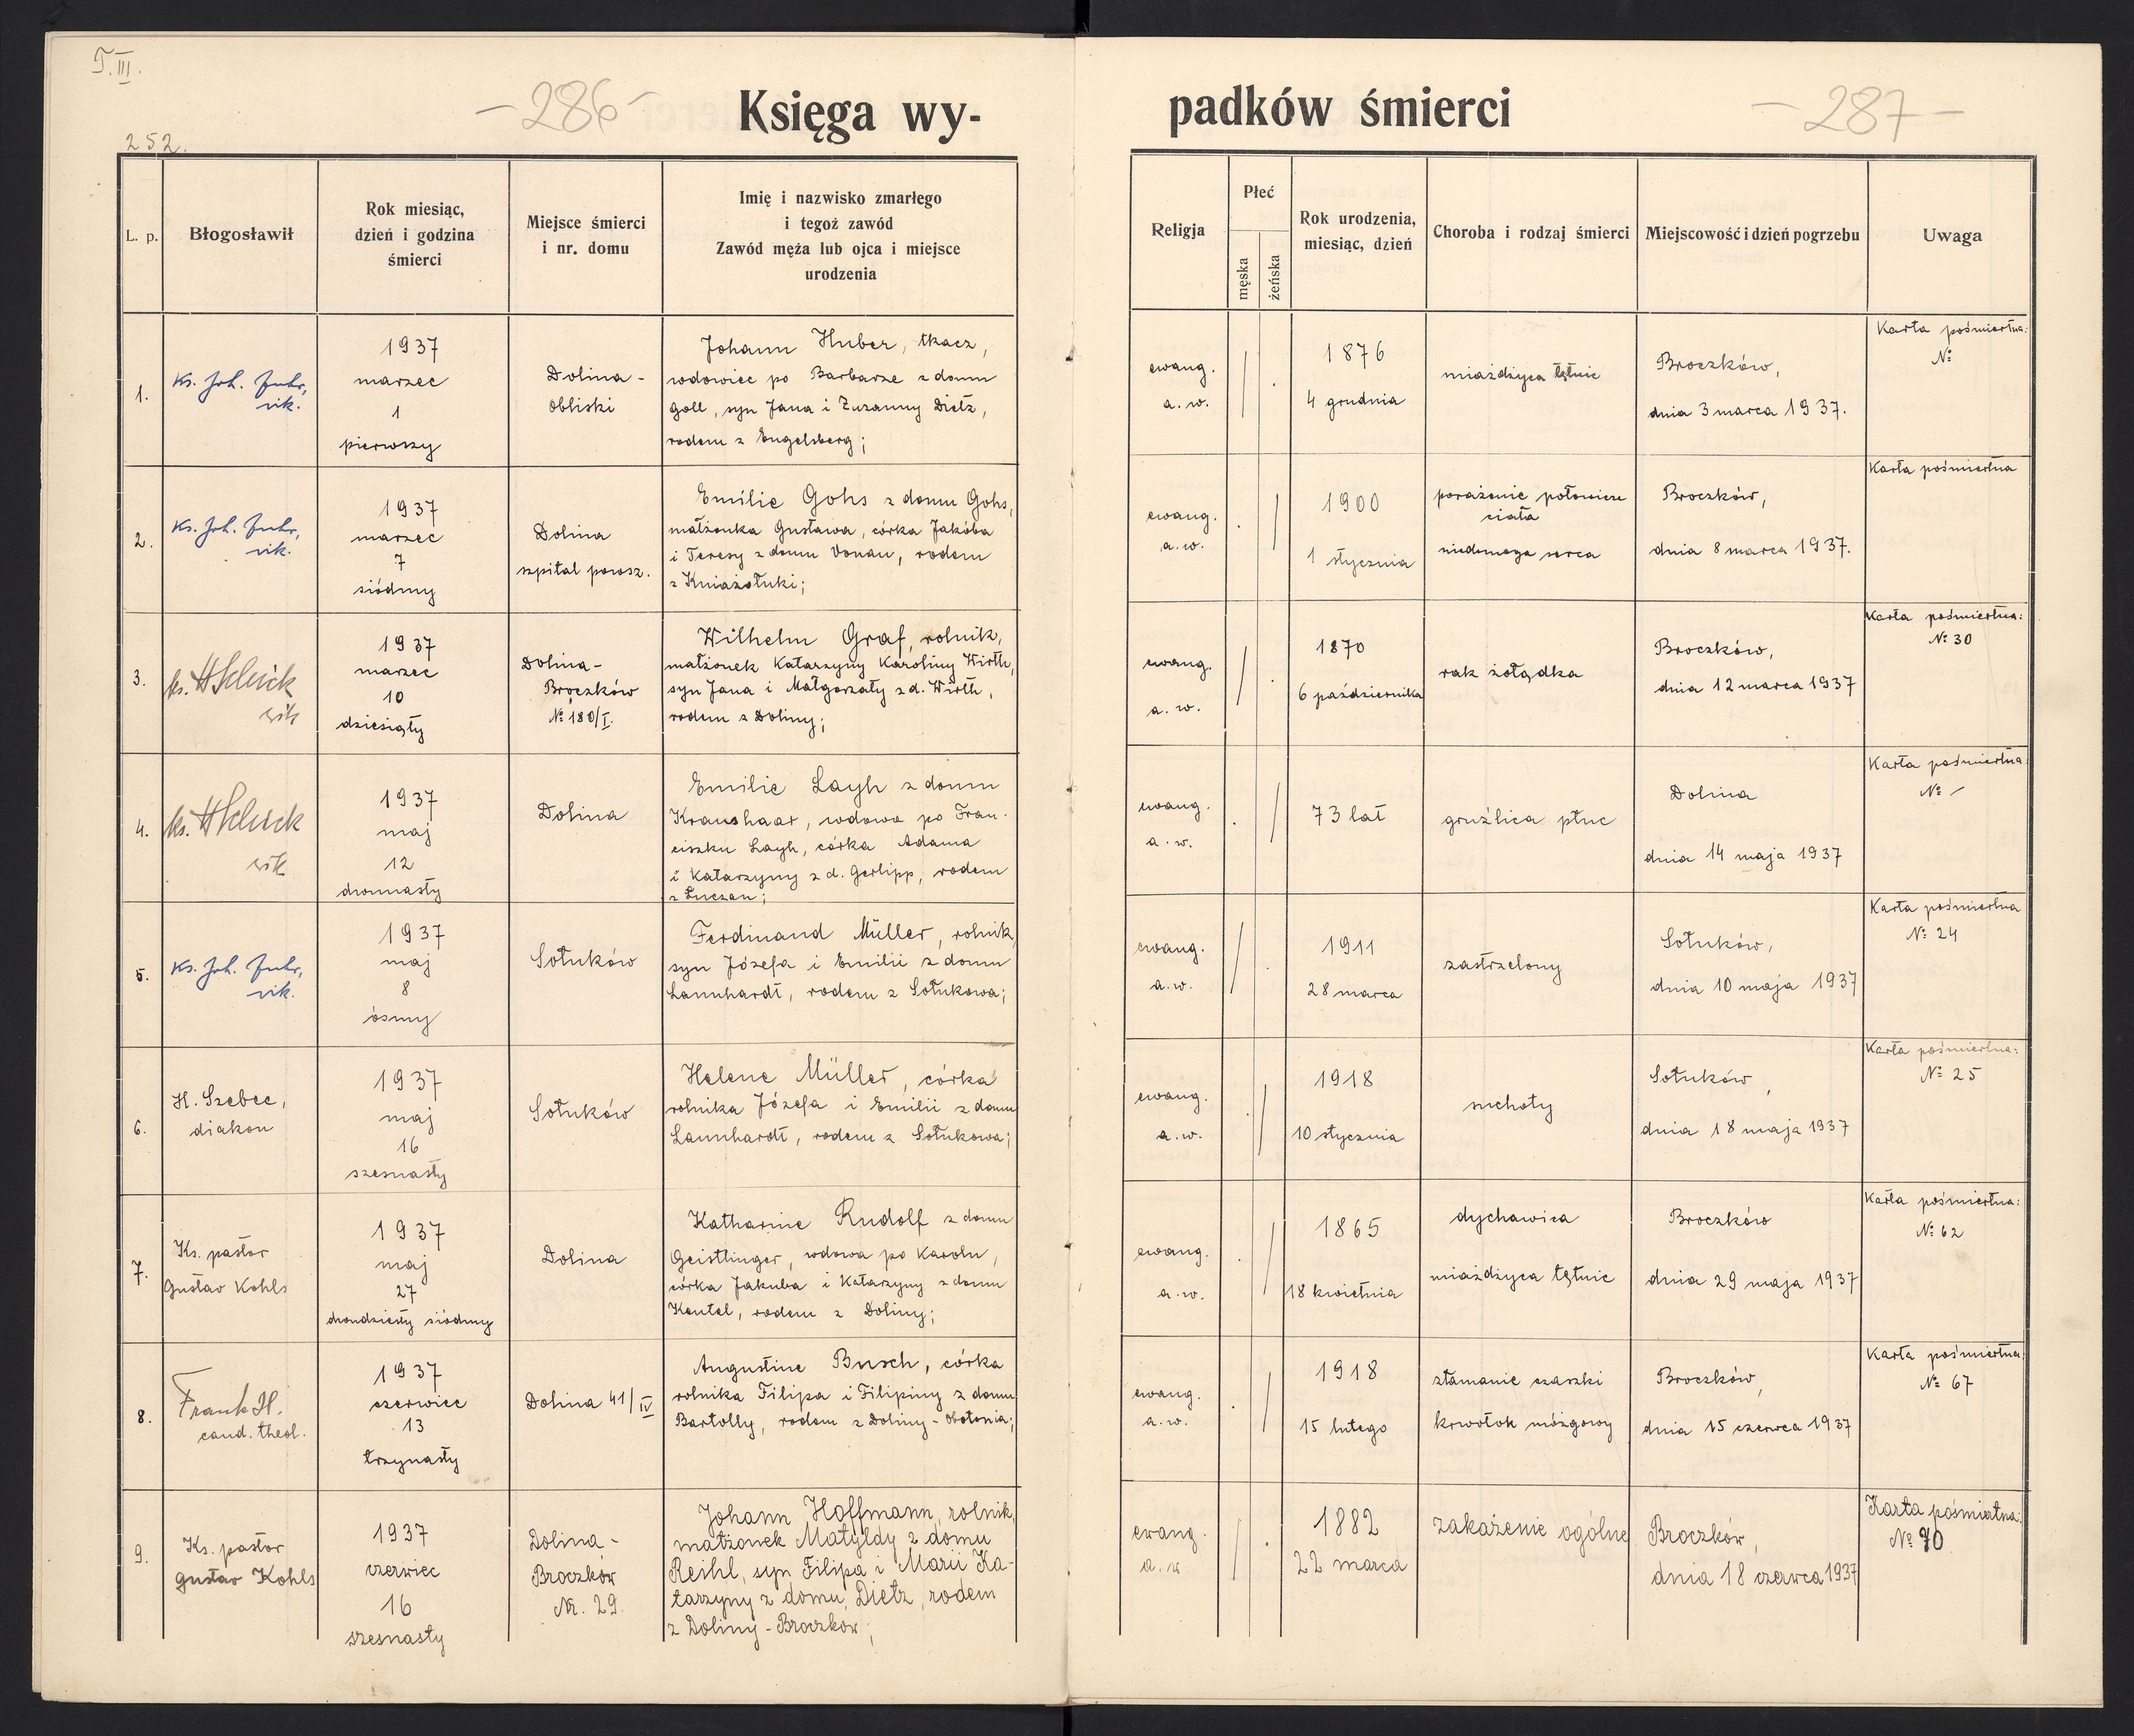 T. III.
- 286 -
252.
Księga wy-
L. p.
Błogosławił
Rok miesiąc,
dzień i godzina
śmierci
Miejsce śmierci
i nr. domu
Imię i nazwisko zmarłego
i tegoż zawód
Zawód męża lub ojca i miejsce
urodzenia
1.
Ks. Joh. Fuhr,
vik.
1937
marzec
1
pierwszy
Dolina -
Obliski
Johann Huber, tkacz,
wdowiec po Barbarze z domu
Goll, syn Jana i Zuzanny Dietz,
rodem z Engelsberg;
2.
Ks. Joh. Fuhr,
vik.
1937
marzec
7
siódmy
Dolina
szpital powsz.
Emilie Gohs z domu Gohs,
małżonka Gustawa, córka Jakóba
i Teresy z domu Vonau, rodem
z Kniaziołuki;
3.
ks. H Schick
wik
1937
marzec
10
dziesiąty
Dolina -
Broczków
№ 180/I.
Wilhelm Graf, rolnik,
małżonek Katarzyny Karoliny Wirth,
syn Jana i Małgorzaty z d. Wirth,
rodem z Doliny;
4.
ks. H Schick
wik
1937
maj
12
dwunasty
Dolina
Emilie Layh z domu
Kraushaar, wdowa po Fran-
ciszku Layh, córka Adama
i Katarzyny z d. Gerlipp, rodem
z Łuczan;
5.
Ks. Joh. Fuhr,
vik.
1937
maj
8
ósmy
Sołuków
Ferdinand Müller, rolnik,
syn Józefa i Emilii z domu
Lannhardt, rodem z Sołukowa;
6.
H. Szebec,
diakon
1937
maj
16
szesnasty
Sołuków
Helene Müller, córka
rolnika Józefa i Emilii z domu
Lannhardt, rodem z Sołukowa;
7.
Ks. pastor
Gustav Kohls
1937
maj
27
dwudziesty siódmy
Dolina
Katharine Rudolf z domu
Geistlinger, wdowa po Karolu,
córka Jakuba i Katarzyny z domu
Kentel, rodem z Doliny;
8.
Frank H.
cand. theol.
1937
czerwiec
13
trzynasty
Dolina 41/IV
Augustine Busch, córka
rolnika Filipa i Filipiny z domu
Bartolly, rodem z Doliny - Obołonia;
9.
Ks. pastor
Gustav Kohls
1937
czerwiec
16
szesnasty
Dolina -
Broczków
Nr. 29.
Johann Hoffmann, rolnik,
małżonek Matyldy z domu
Reihl, syn Filipa i Marii Ka-
tarzyny z domu Dietz, rodem
z Doliny - Broczków;
padków śmierci
- 287 -
Religja
Płeć
męska
żeńska
Rok urodzenia,
miesiąc, dzień
Choroba i rodzaj śmierci
Miejscowość i dzień pogrzebu
Uwaga
ewang.
a. w.
1876
4 grudnia
miażdżyca tętnic
Broczków,
dnia 3 marca 1937.
Karta pośmiertna:
№
ewang.
a. w.
1900
1 stycznia
porażenie połowicze
ciała
niedomoga serca
Broczków,
dnia 8 marca 1937.
Karta pośmiertna
ewang.
a. w.
1870
6 października
rak żołądka
Broczków,
dnia 12 marca 1937
Karta pośmiertna:
№ 30
ewang.
a. w.
73 lat
gruźlica płuc
Dolina
dnia 14 maja 1937
Karta pośmiertna:
№ -
ewang.
a. w.
1911
28 marca
zastrzelony
Sołuków,
dnia 10 maja 1937
Karta pośmiertna
№ 24
ewang.
a. w.
1918
10 stycznia
suchoty
Sołuków,
dnia 18 maja 1937
Karta pośmiertna:
№ 25
ewang.
a. w.
1865
18 kwietnia
dychawica
miażdżyca tętnic
Broczków
dnia 29 maja 1937
Karta pośmiertna:
№ 62
ewang.
a. w.
1918
15 lutego
złamanie czaszki
krwotok mózgowy
Broczków,
dnia 15 czerwca 1937
Karta pośmiertna:
№ 67
ewang.
a. w
1882
22 marca
zakażenie ogólne
Broczków,
dnia 18 czerwca 1937
Karta pośmiertna:
№ 70